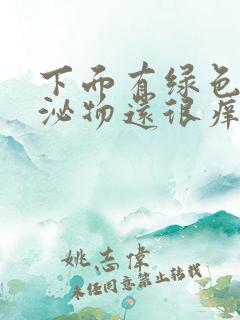 下面有绿色
泌物还很痒
姚志伟
未经同意禁止转载